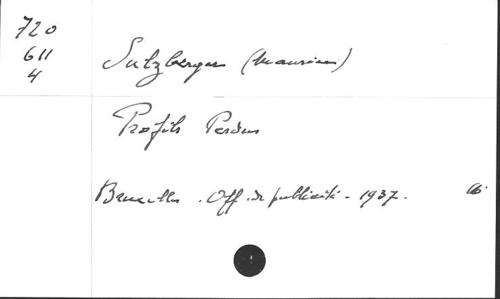 720
611
4
Sulzberger (Maurice)
Profils Perdus
Bruxelles. Off. de publicité - 1937. 16.